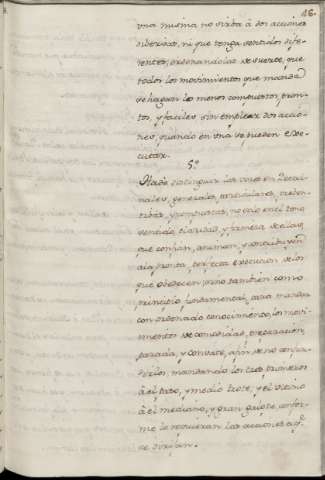 48.
una misma no sirba à dos acciones
diversas, ni que tenga sentidos dife-
rentes, ordenandolas de suerte, que
todos los movimientos que mandan
se hagan los menos compuestos, pron-
tos, y faciles sin emplear dos accio-
nes, quando en una se pueden exe-
cutar.
5º
distinguir las voces en
generales, particulares,
y compuestas, no solo en el tono
sentido, claridad, y firmeza de ellas,
que confian, animan, y contribuyen
à la pronta, perfecta execucion de los
que obedecen, sino tambien como
principio fundamental, para mandar
con ordenado conocimiento, los movi-
mientos de comedidas, preparacion,
parada, y combate, afin de no confun-
dirlos mandando los tres primeros
à el paso, y medio trote, y el ultimo
à el mediano, y gran galope, confor-
me lo requieran las acciones à qe.
se dirijan.